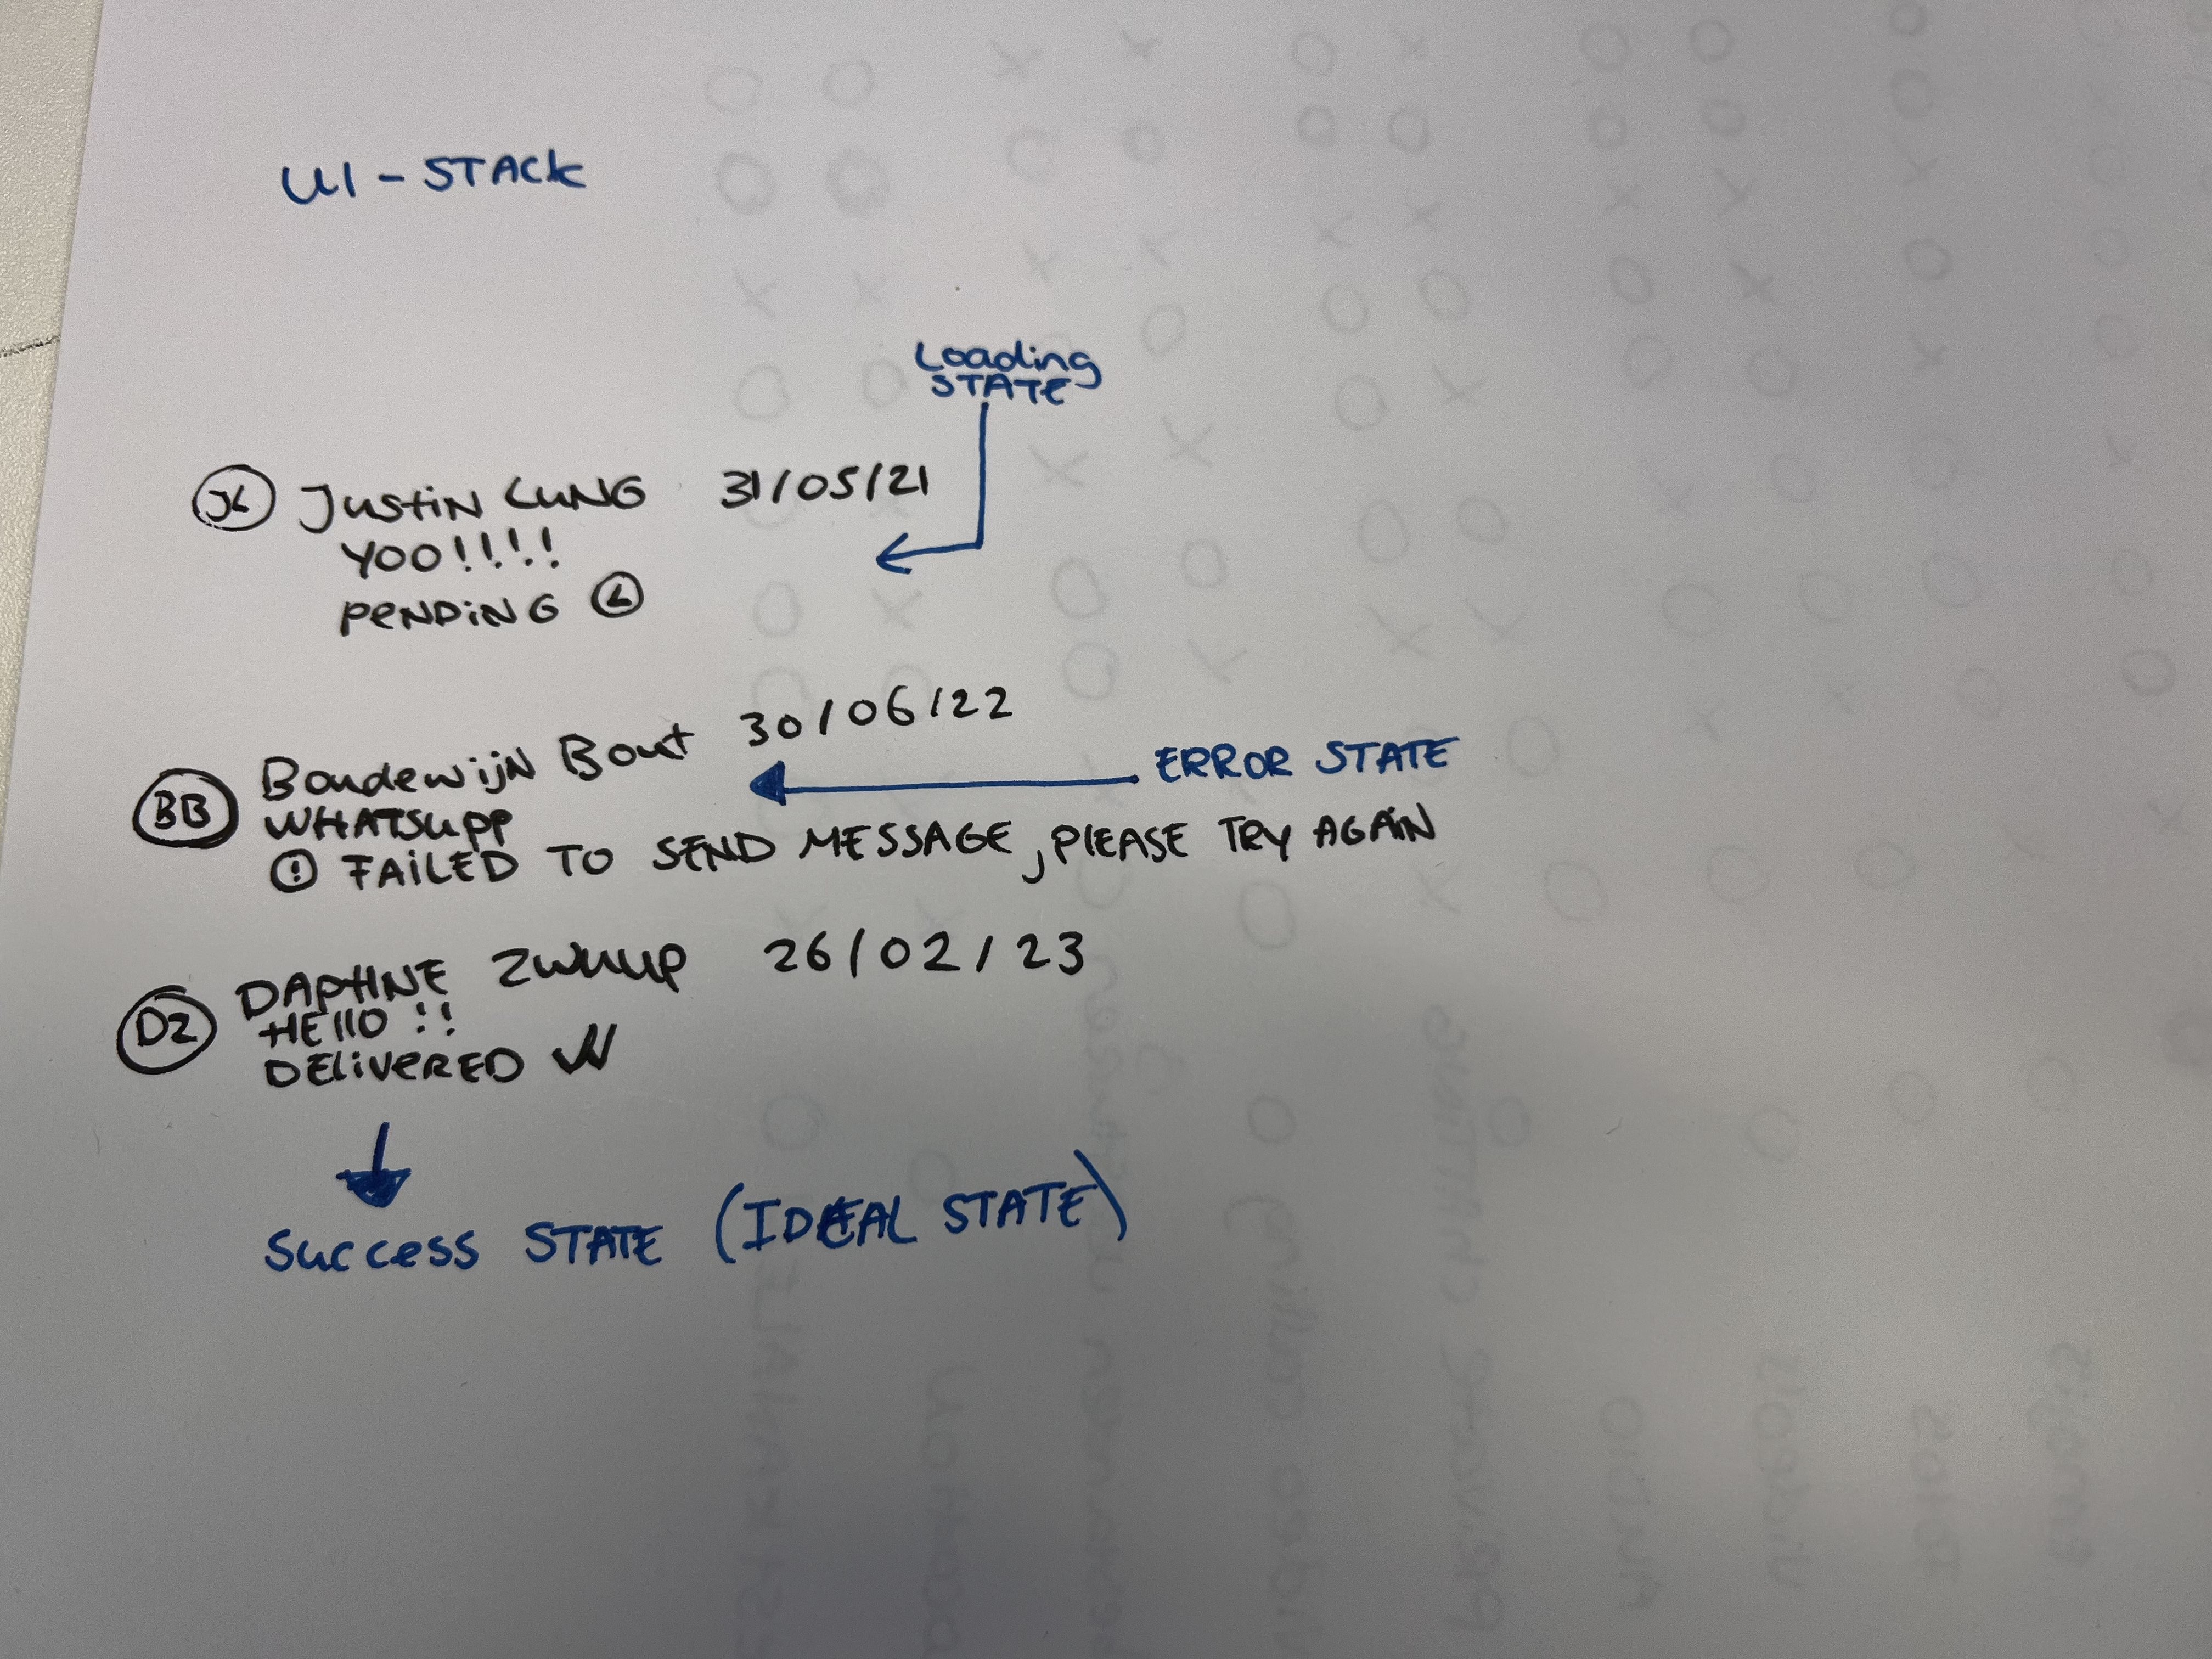 UI - STACK
Loading
STATE
JL Justin LUNG 31/05/21
YOO!!!!
PENDING
BB Boudewijn Bout 30/06/22
ERROR STATE
WHATSUPP
! FAILED TO SEND MESSAGE, PLEASE TRY AGAIN
DZ DAPHNE ZWUUP 26/02/23
HELLO !!
DELIVERED
Success STATE (IDEAL STATE)